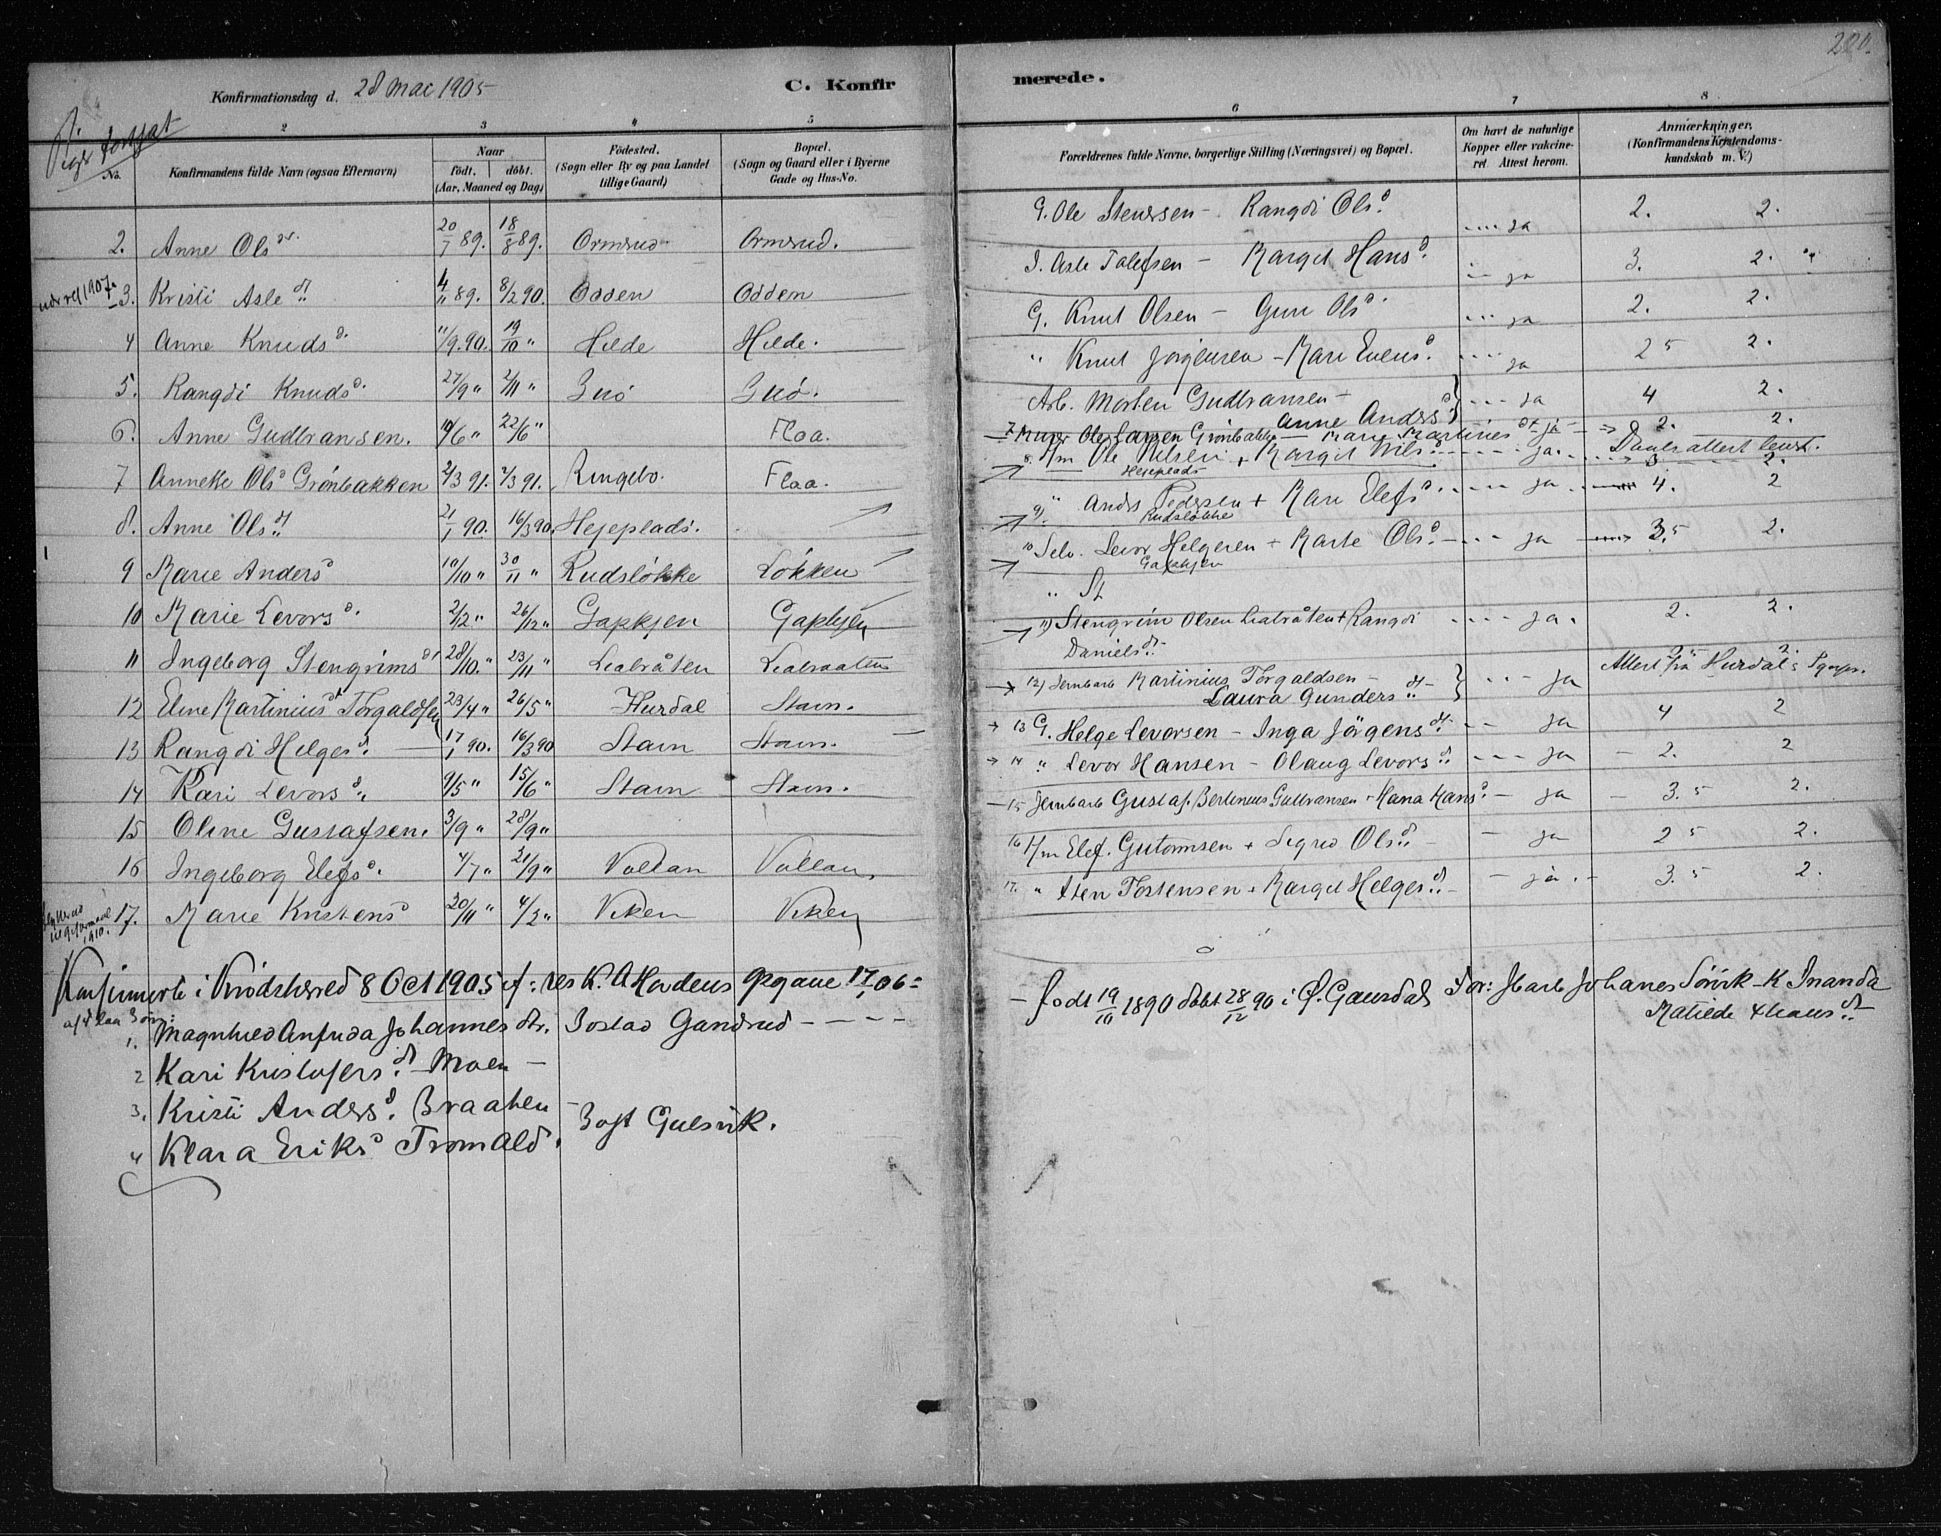 200.
Konfirmationsdag d. 28 Mai 1905
C. Konfirmerede.
Piger fortsat
2 3 4 5 6 7 8
No.
Konfirmandens fulde Navn (ogsaa Efternavn)
Naar
födt. döbt.
(Aar, Maaned og Dag)
Födested.
(Sogn eller By og paa Landet
tillige Gaard)
Bopæl.
(Sogn og Gaard eller i Byerne
Gade og Hus-No.
Forældrenes fulde Navne, borgerlige Stilling (Næringsvei) og Bopæl.
Om havt de naturlige
Kopper eller vakcine-
ret Attest herom.
Anmærkninger.
(Konfirmandens Kristendoms-
kundskab m. V.)
2. Anne Olsdr. 20/7 89. 18/8 89. Ormsrud Ormsrud.
3. Kristi Asle d. 4/11 89. 8/2 90. Odden Odden
4 Anne Knuds d. 11/9.90. 19/10 " Hilde Hilde.
5. Rangdi Knuds d. 27/9 " 2/11 "
6. Anne Gudbransen. 10/6 " 22/6 " Flaa.
7 Anneke Ols d Grønbakken 2/3 91. 7/3 91. Ringebo. Flaa.
8. Anne Ols d. 21/1 90. 16/3 90. Hejeplads.
9 Marie Anders d 10/10 " 30/11 " Rudsløkke Løkken
10 Marie Levors d. 2/2 " 26/12 " Gapkjen Gapkjen
11 Ingeborg Stengrims dt 28/10. " 23/11 " Liabråten Liabraaten
12 Eline Martinius dt Torgaldsen 23/4 " 26/5 " Hurdal Stavn.
13 Rangdi Helges d. 17/1 90. 16/3 90 Stavn Stavn.
14 Kari Levors d. 9/5 " 15/6 " Stavn Stavn.
15 Oline Gustafsen. 3/9 " 28/9 "
16 Ingeborg Elefs d. 4/7 " 21/9 " Vollan Vollan,
17. Marie Knstens d 20/11 " 4/2 " Viken Viken
G. Ole Stensrsen - Rangdi Ols d. .... ja 2. 2.
J. Asle Tolefsen - Margit Hans d. ja 3. 2. "
G. Knut Olsen - Guri Ols d. ... ja 2. 2.
" Knut Jørgensen - Kari Evens d. .... ja 2 5 2.
Arb. Morten Gudbransen -
Anne Anders d } --- ja 4 2.
7. Murer Ole Larsen Grønbakke - Marie Martines dt - ja - 2. 2.
8. H/m Ole Nilsen + Margit Nils d. - - - ja. Daabsattest
Hejeplads 3 2.
9) " Anders Pedersen + Kari Elefs d. - - - ja 4. 2
Rudsløkke
10 Selv. Levor Helgesen + Marte Ols d. - - - ja 3.5 2.
Gapkjen
" St
11) Stengrim Olsen Liabråten + Rangdi .... ja. 2. 2.
Daniels d.
12) Jernbarb Martinius Torgaldsen -
Laura Gunders d. - } --- ja Attest fra Hurdals Sgnpr.
13 G. Helge Levorsen - Inga Jörgens dt. - - ja 4 2
14 " Levor Hansen - Olaug Levors d. - - - ja - 2. 2
15 Jernbarb Gustaf Bertinius Gulbransen + Mana Hans d. - ja - 3.5 2.
16 H/m Elef. Gutormsen + Sigrid Ols d. - ja 2 5 2.
17. " Sten Torstensen + Margit Helges d. - - ja. - 3.5 2.
Konfirmerte i Krødsherred 8 Oct 1905 ef: res K. A Hordens Opgave 17/1 06 =
af Flaa Børn:
1. Magnhild Anfrida Johannes dtr. Bostad Gandrud - - - -
- født 19/10 1890 døbt 28/12 90 i Ø. Gausdal For: Jbarb Johanes Sörvik - K Inanda
Matilde Hans d.
2 Kari Kristofers d. - Moen -
3. Kristi Anders d. Braaten -
4 Klara Eriks d Tromald. Bost Gulsvik.